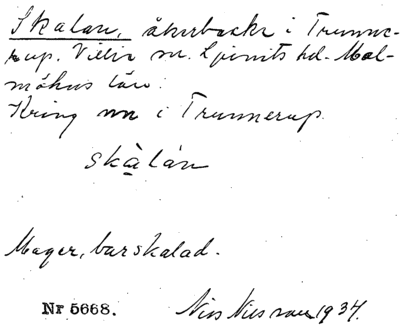 Skalan, åkerbacke i Trunne-
rup. Villie sn. Ljunits hd. Mal-
möhus län.
Kring nn i Trunnerup.
skàlan
Mager, barskalad.
Nr 5668. Nils Nilsson 1934.